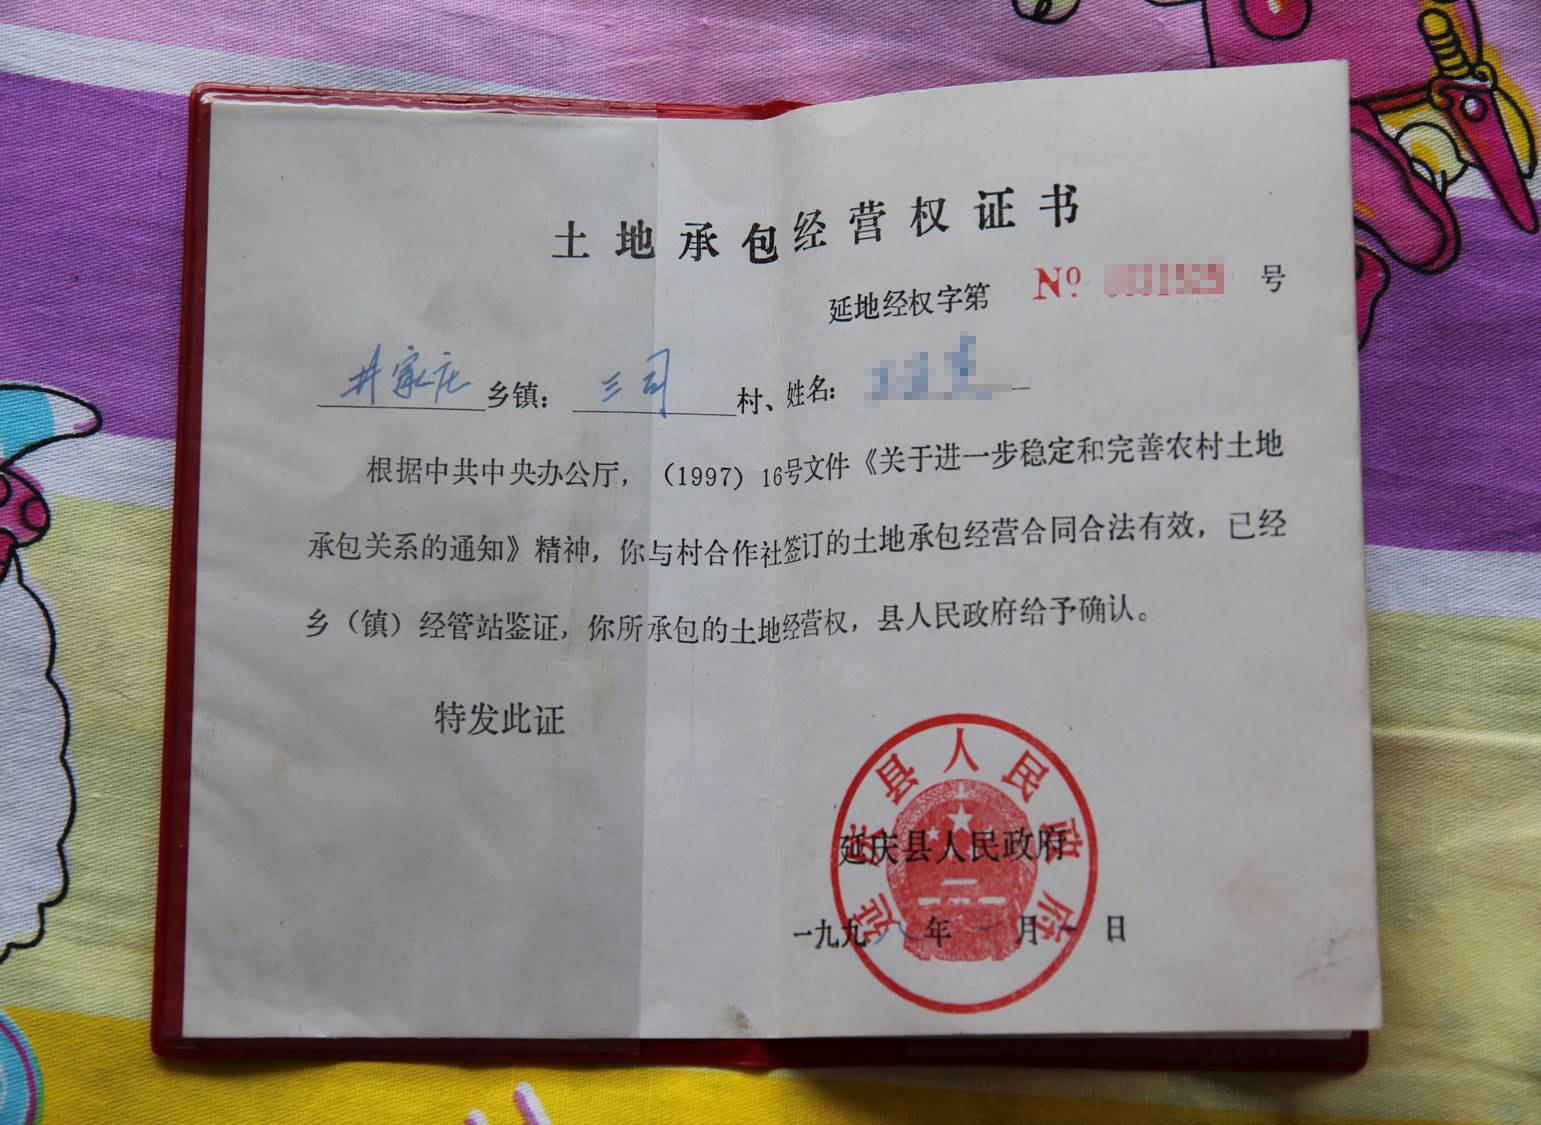 土地承包经营权证书
延地经权字第 No. 号
井家庄乡镇：三司村、姓名：
根据中共中央办公厅，（1997）16号文件《关于进一步稳定和完善农村土地
承包关系的通知》精神，你与村合作社签订的土地承包经营合同合法有效，已经
乡（镇）经管站鉴证，你所承包的土地经营权，县人民政府给予确认。
特发此证
延庆县人民政府
延庆县人民政府
一九九八年一月一日